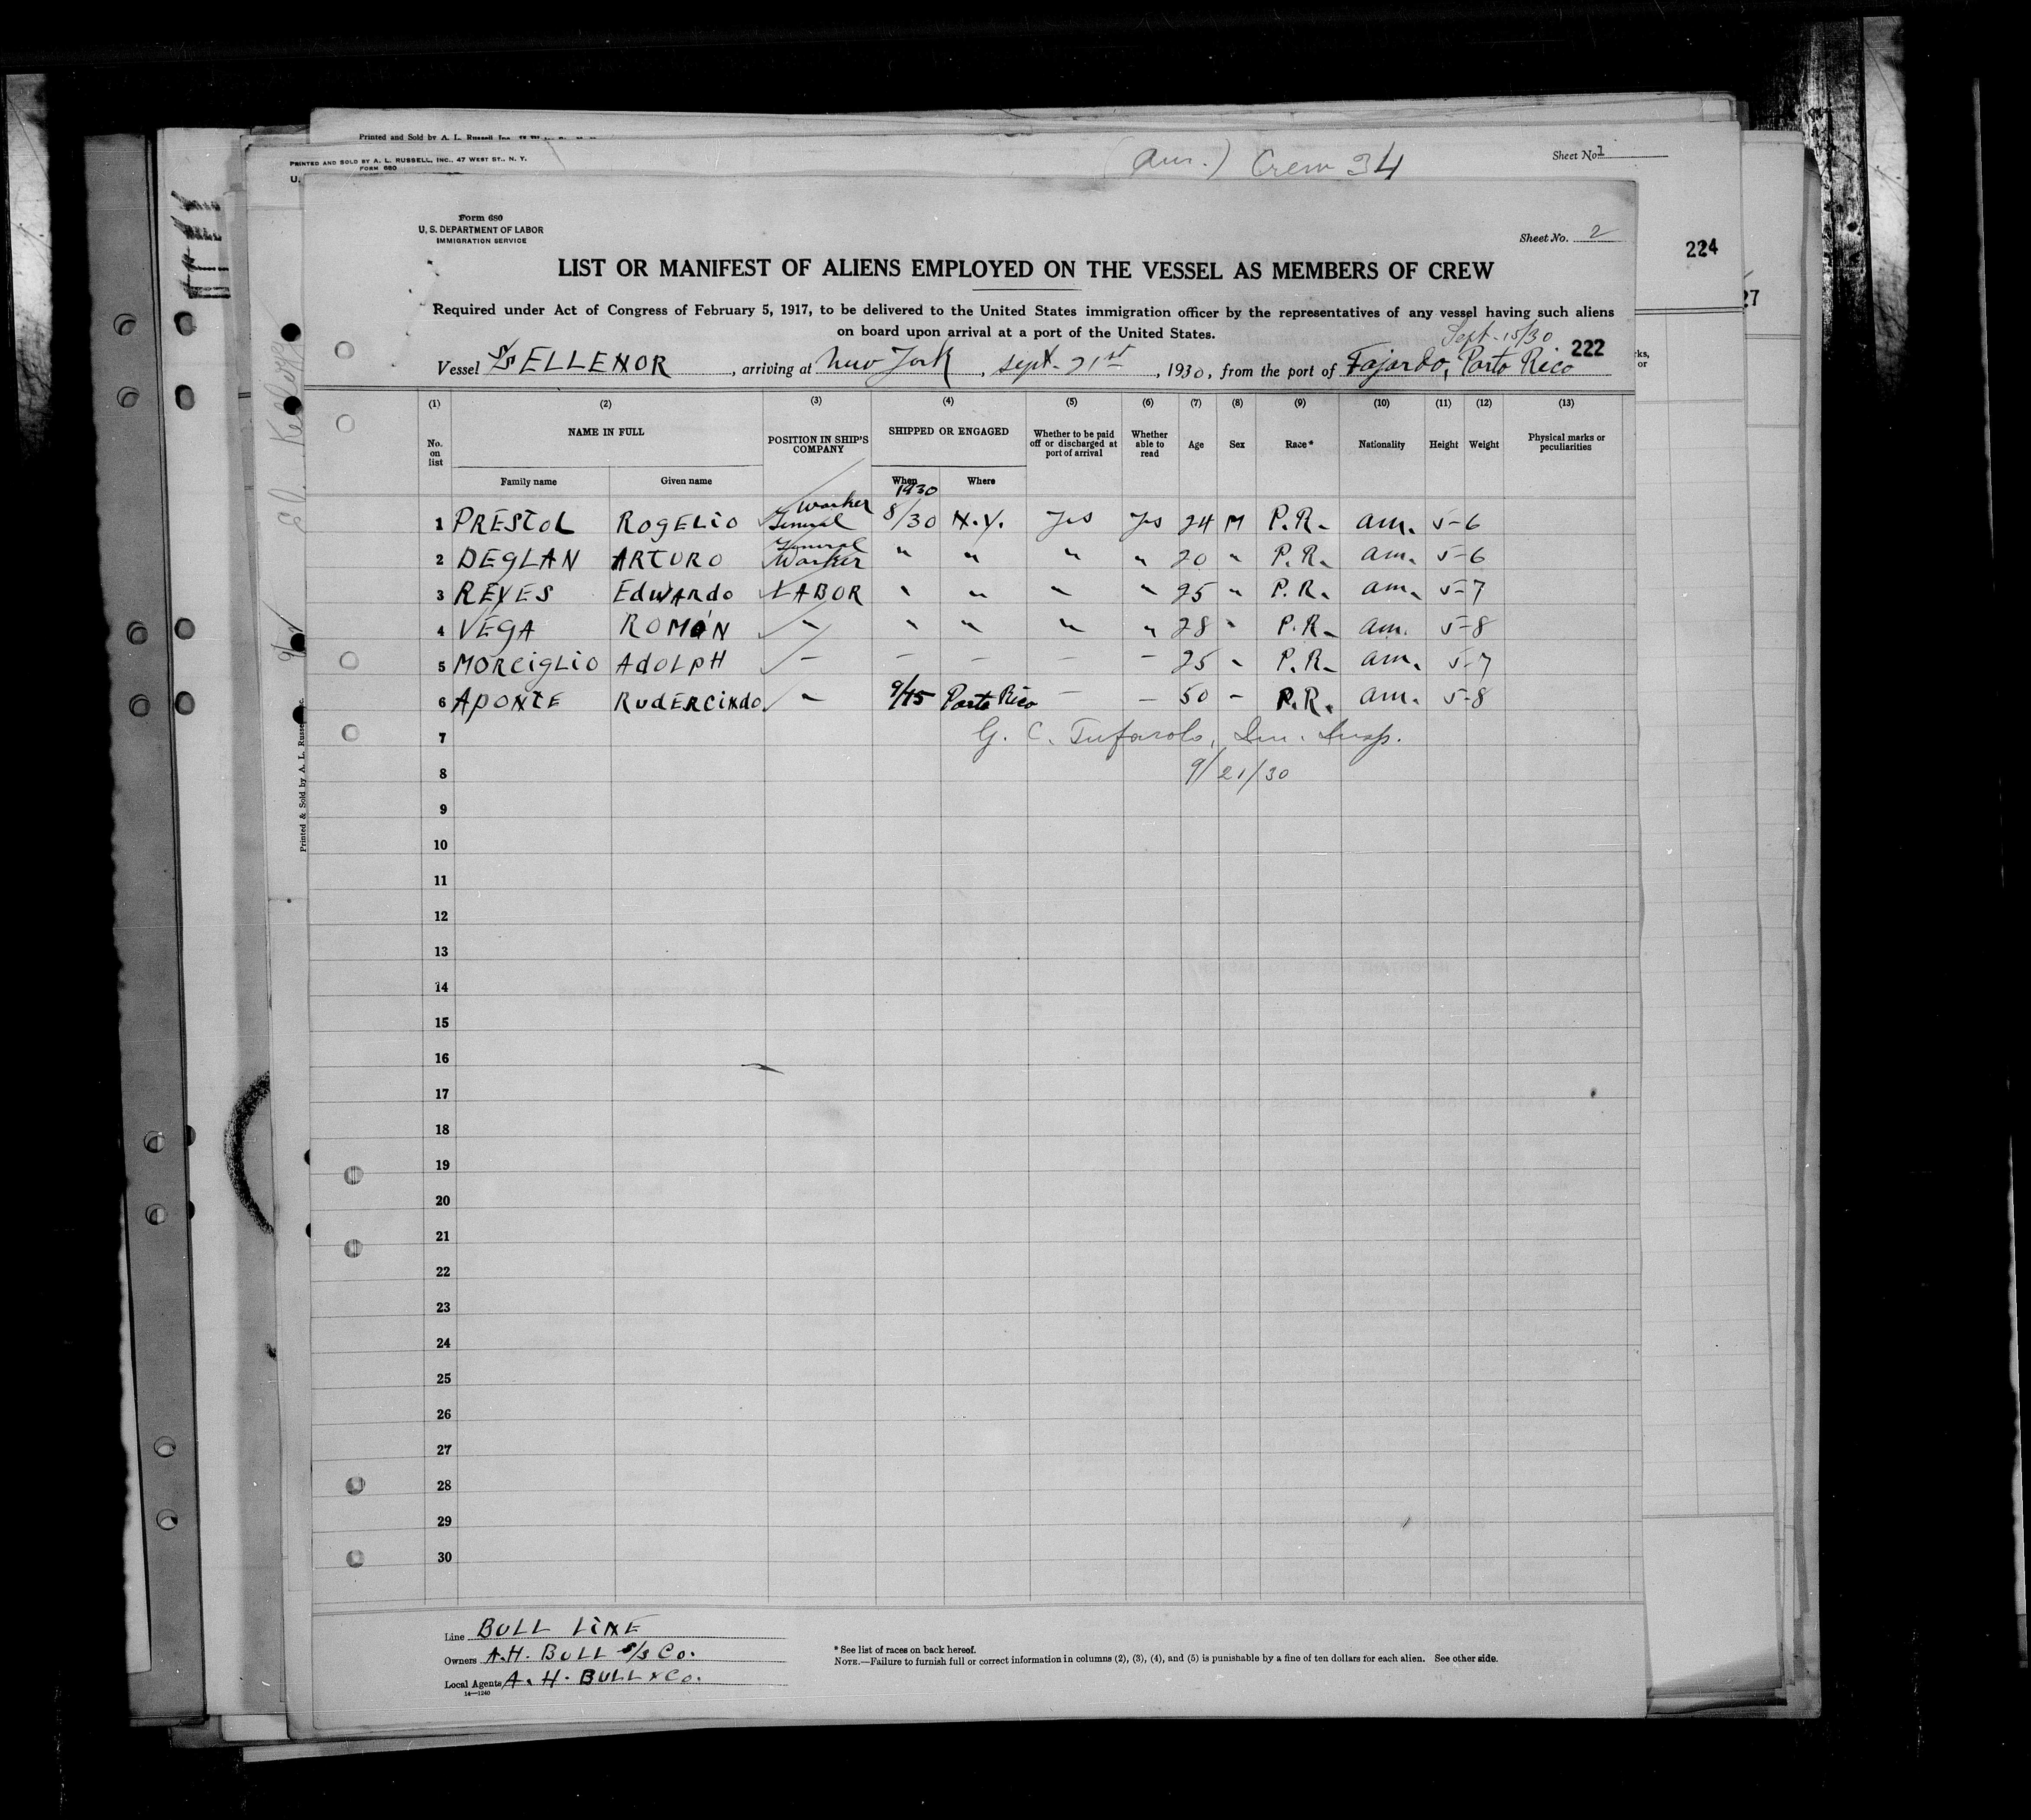 Printed and Sold by A. L. Russell, Inc.
PRINTED AND SOLD BY A. L. RUSSELL, INC., 47 WEST ST., N. Y.
FORM 680
U.
(Am.) Crew 34
Sheet No. 1
224
27
Form 680
U. S. DEPARTMENT OF LABOR
IMMIGRATION SERVICE
Sheet No. 2
LIST OR MANIFEST OF ALIENS EMPLOYED ON THE VESSEL AS MEMBERS OF CREW
Required under Act of Congress of February 5, 1917, to be delivered to the United States immigration officer by the representatives of any vessel having such aliens
on board upon arrival at a port of the United States.
Sept-15/30
222
Vessel S/S ELLENOR, arriving at New York, Sept. 21st, 1930, from the port of Fajardo, Porto Rico
ks,
or
(1) (2) (3) (4) (5) (6) (7) (8) (9) (10) (11) (12) (13)
No. on list NAME IN FULL POSITION IN SHIP'S COMPANY SHIPPED OR ENGAGED Whether to be paid off or discharged at port of arrival Whether able to read Age Sex Race* Nationality Height Weight Physical marks or peculiarities
Family name Given name When Where
1930
1 PRESTOL ROGELIO General Worker 8/30 N.Y. Yes Yes 24 M P.R. Am. 5-6
2 DEGLAN ARTURO General Worker " " " " 20 " P.R. Am. 5-6
3 REYES EDWARDO LABOR " " " " 25 " P.R. Am. 5-7
4 VEGA ROMÁN " " " " " 28 " P.R. Am. 5-8
5 MORCIGLIO ADOLPH – – – – – 25 " P.R. Am. 5-7
6 APONTE RUDERCINDO – 9/15 Porto Rico – – 50 – P.R. Am. 5-8
7 G. C. Tufarolo, Im. Insp.
8 9/21/30
9
10
11
12
13
14
15
16
17
18
19
20
21
22
23
24
25
26
27
28
29
30
Line BULL LINE
Owners A.H. BULL S/S Co.
Local Agents A. H. BULL & Co.
14—1240
* See list of races on back hereof.
NOTE.—Failure to furnish full or correct information in columns (2), (3), (4), and (5) is punishable by a fine of ten dollars for each alien. See other side.
Printed & Sold by A. L. Russell, Inc.